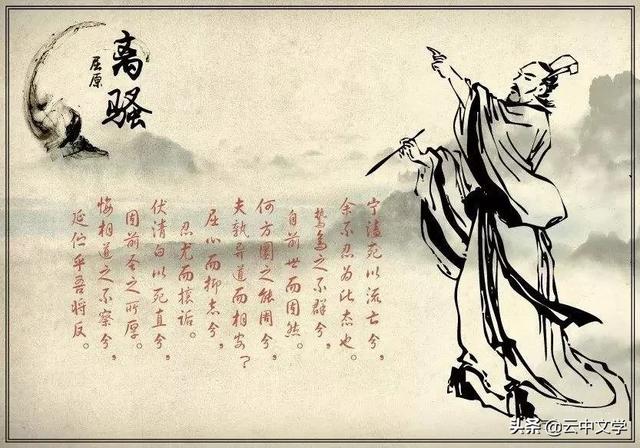 离骚
屈原
宁溘死以流亡兮，
余不忍为此态也。
鸷鸟之不群兮，
自前世而固然。
何方圜之能周兮，
夫孰异道而相安？
屈心而抑志兮，
忍尤而攘诟。
伏清白以死直兮，
固前圣之所厚。
悔相道之不察兮，
延伫乎吾将反。
头条@云中文学